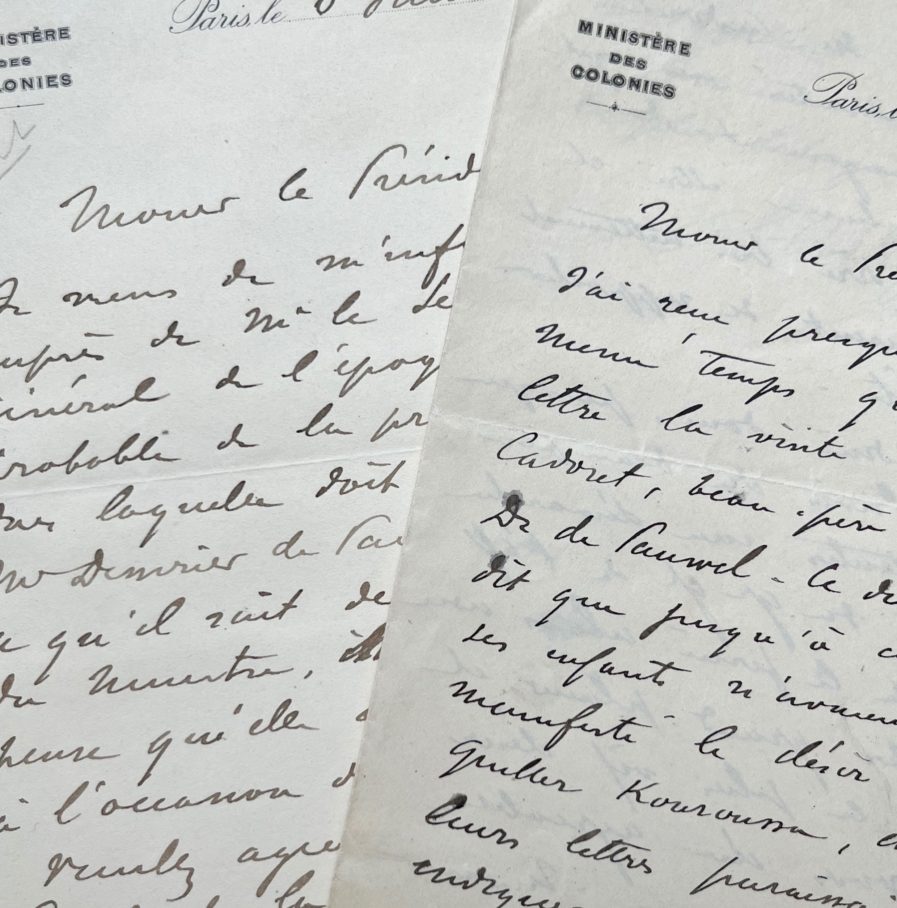 ISTÈRE
DES
LONIES
Paris, le 8
Monsr le Présid
Je viens de m'inf
auprès de Mr le Se
Général de l'époq
probable de la pr
dans laquelle doit
Mr Demrier de
ce qu'il soit de
du Ministre,
pense qu'elle
à l'occasion d
Veuillez agré
MINISTÈRE
DES
COLONIES
Paris,
Monsr le Pré
J'ai reçu presqu
même temps q
lettre la visite
Cadoret, beau-père
Dr de Sauvel - Ce d
dit que jusqu'à c
ses enfants n'avaien
manifesté le désir
quitter Kouroussa,
leurs lettres paraiss
indiqu